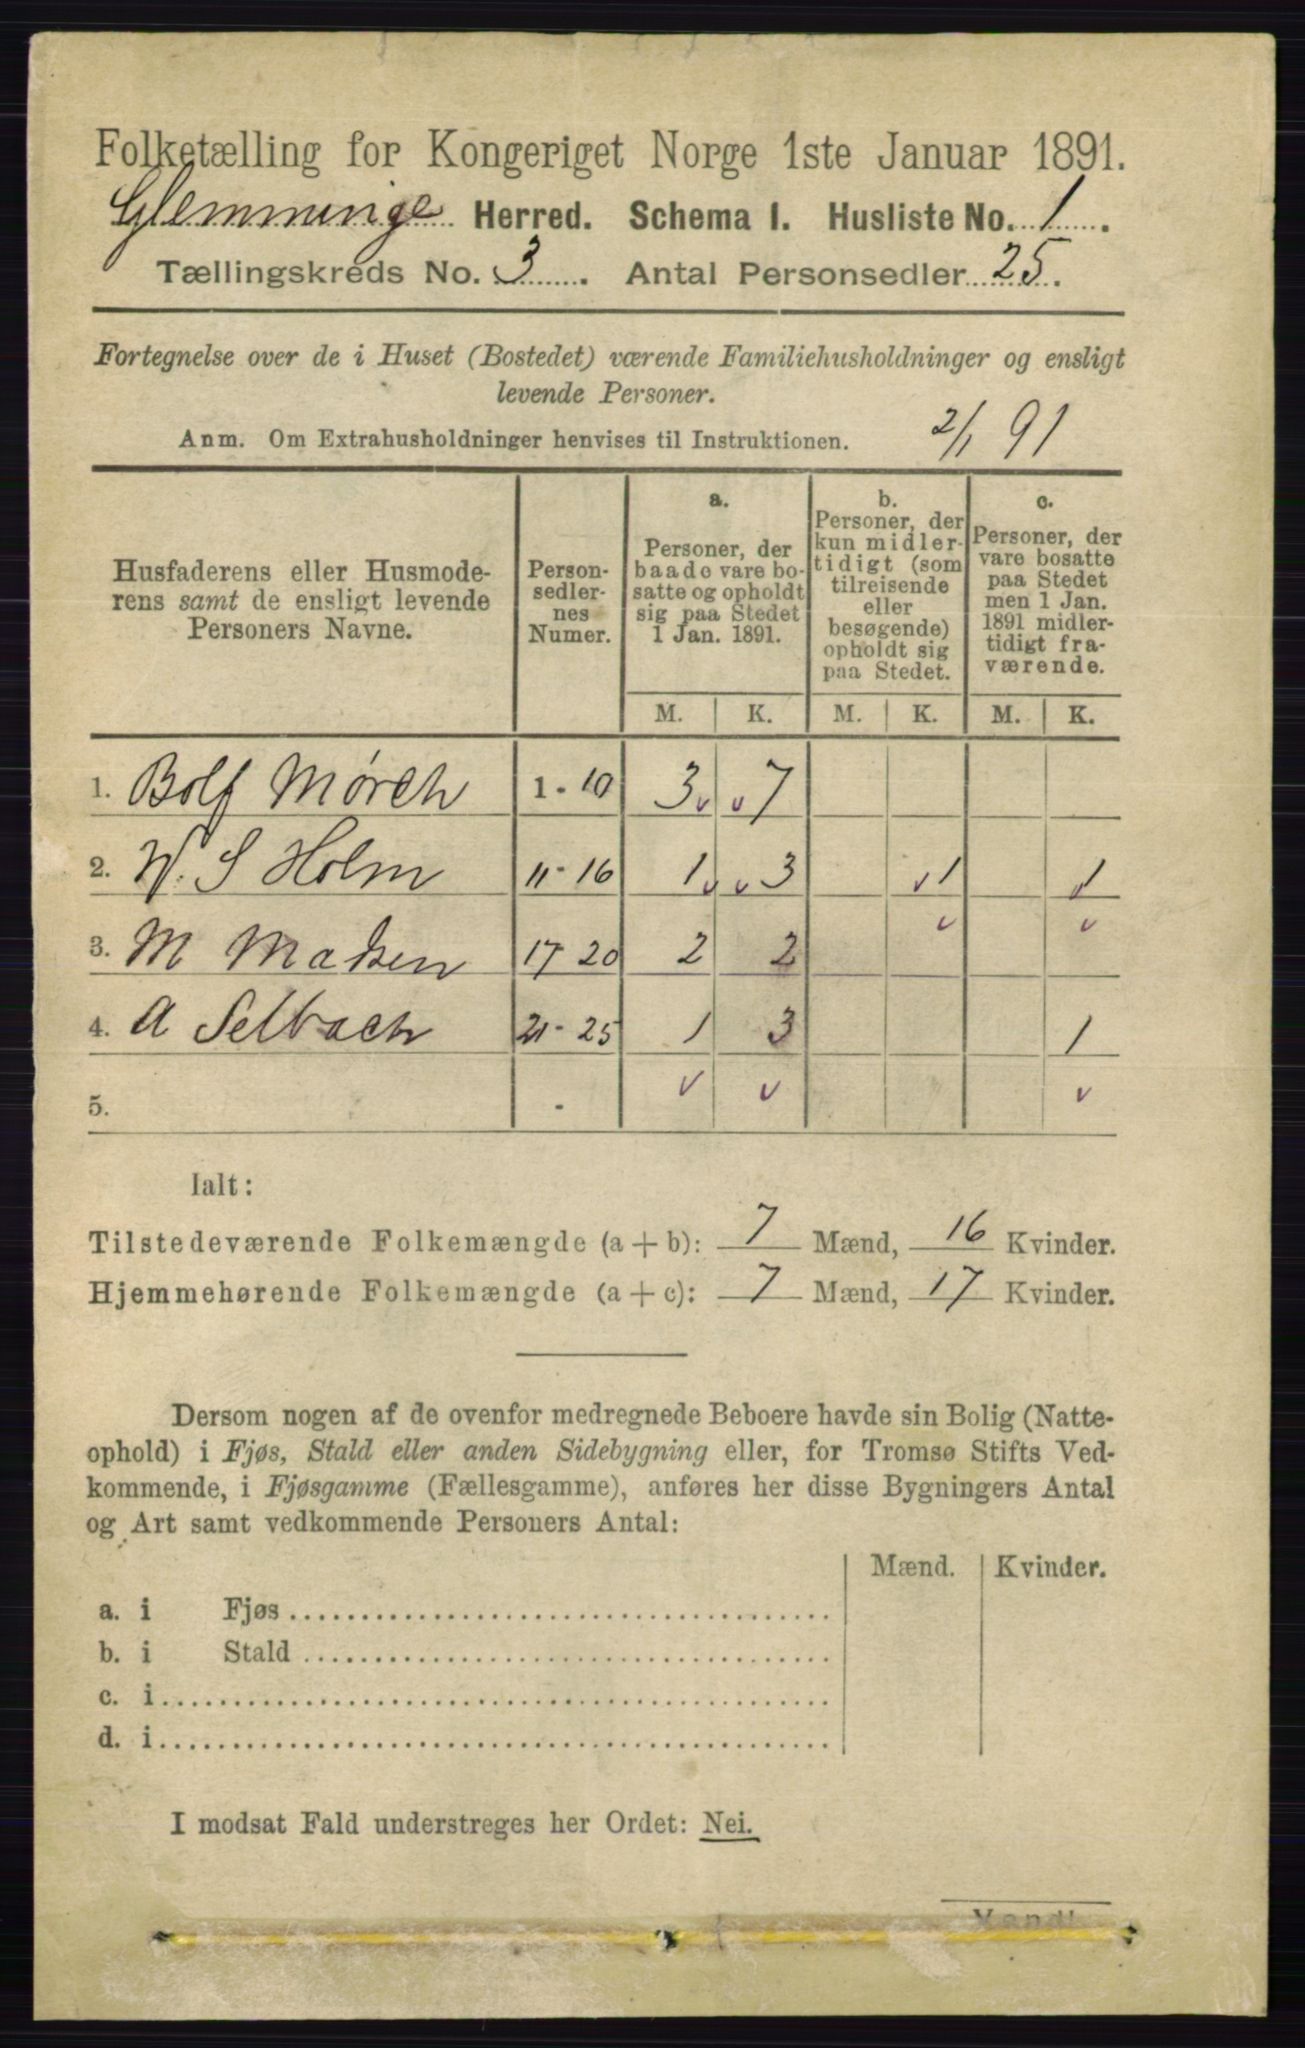 Folketælling for Kongeriget Norge 1ste Januar 1891.
Glemminge Herred. Schema I. Husliste No. 1.
Tællingskreds No. 3. Antal Personsedler 25.
Fortegnelse over de i Huset (Bostedet) værende Familiehusholdninger og ensligt
levende Personer.
Anm. Om Extrahusholdninger henvises til Instruktionen. 2/1 91
Husfaderens eller Husmode-
rens samt de ensligt levende
Personers Navne.
Person-
sedler-
nes
Numer.
a.
Personer, der
baade vare bo-
satte og opholdt
sig paa Stedet
1 Jan. 1891.
b.
Personer, der
kun midler-
tidigt (som
tilreisende
eller
besøgende)
opholdt sig
paa Stedet.
c.
Personer, der
vare bosatte
paa Stedet
men 1 Jan.
1891 midler-
tidigt fra-
værende.
M. K. M. K. M. K.
1. Bolf Mørch 1-10 3 7
2. W. S Holm 11-16 1 3 1 1
3. M Madsen 17-20 2 2
4. A Selbach 21-25 1 3 1
5. -
Ialt:
Tilstedeværende Folkemængde (a + b): 7 Mænd, 16 Kvinder.
Hjemmehørende Folkemængde (a + c): 7 Mænd, 17 Kvinder.
Dersom nogen af de ovenfor medregnede Beboere havde sin Bolig (Natte-
ophold) i Fjøs, Stald eller anden Sidebygning eller, for Tromsø Stifts Ved-
kommende, i Fjøsgamme (Fællesgamme), anføres her disse Bygningers Antal
og Art samt vedkommende Personers Antal:
Mænd. Kvinder.
a. i Fjøs
b. i Stald
c. i
d. i
I modsat Fald understreges her Ordet: Nei.